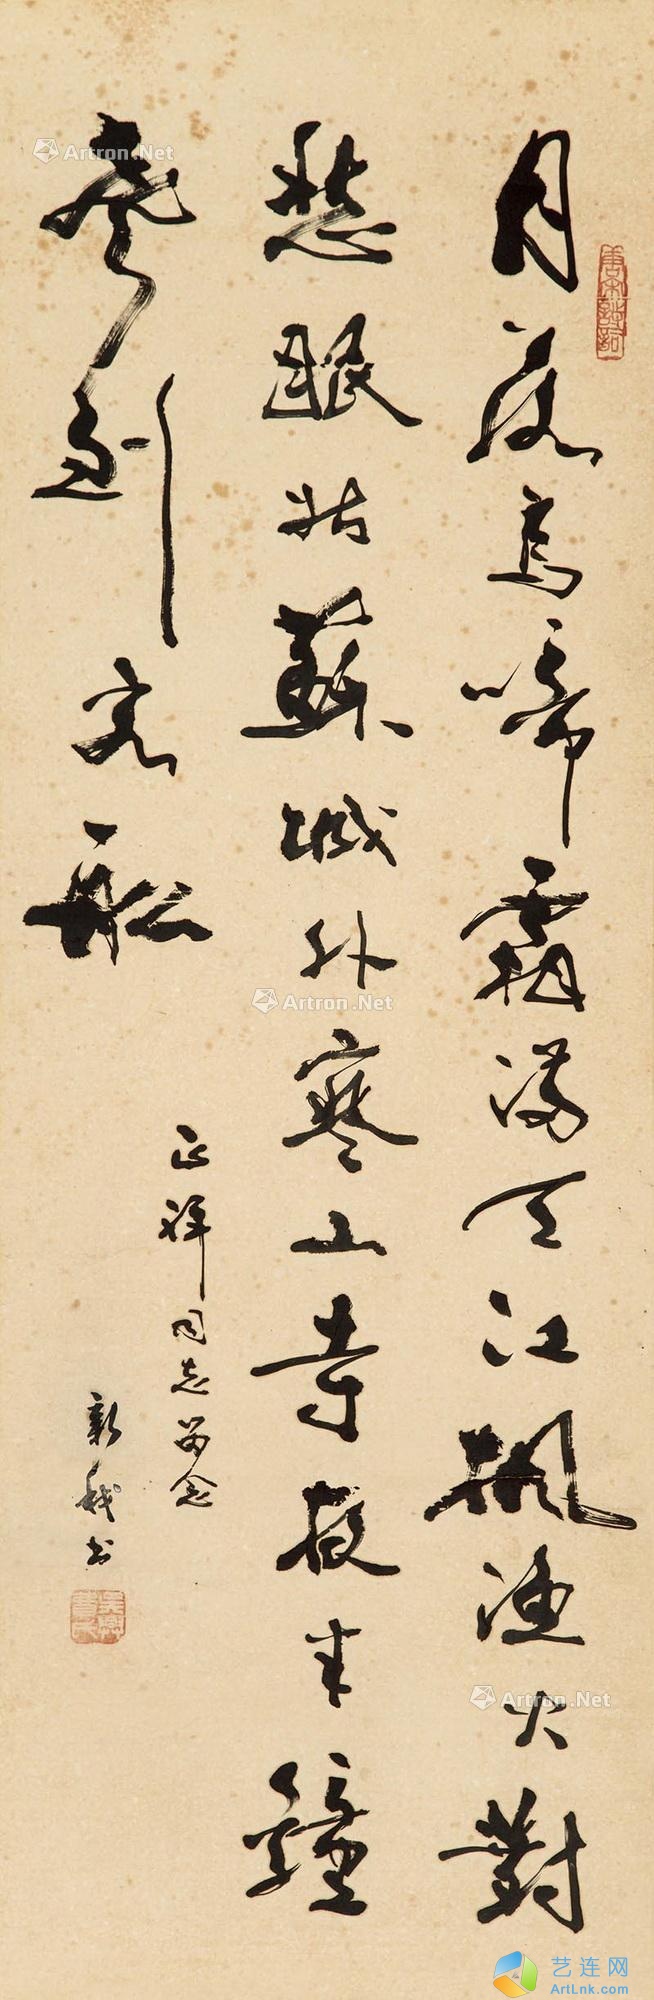 月落烏啼霜满天江楓漁火對
愁眠姑蘇城外寒山寺夜半鐘
聲到客船
正祥同志留念
新我书
唐宋詩詞
Artron.Net
Artron.Net
Artron.Net
艺连网
ArtLnk.com